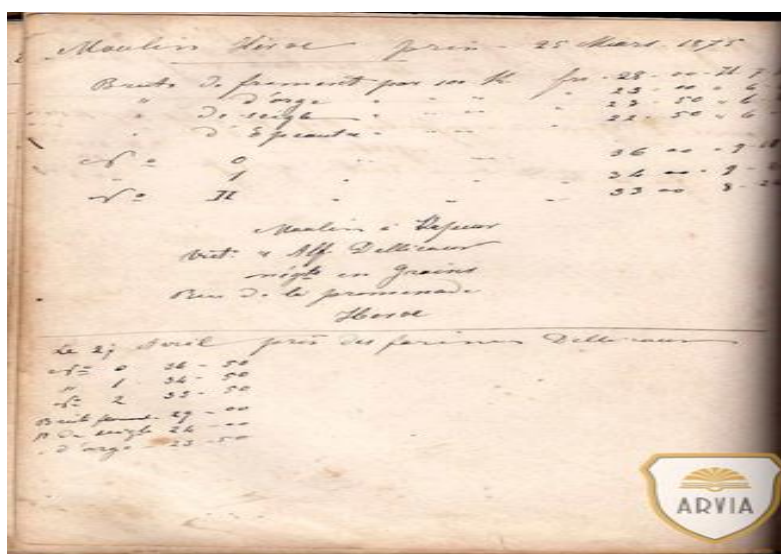 Moulin Herve prix - 25 Mars 1875
Brute de froment par 100 K frs - 28 - 00 -
" d'orge " " " 23 - 00 " 6 -
" de seigle " " " 23 - 50 " 6
" d'Epeautre " " " 22 - 50 " 6
N° 0 " " 36 00 - 9
" 1 " " 34 00 - 9 -
N° II " " 33 00 8 -
Moulin à Vapeur
Vict: & Alf Dellicour
négts en Grains
Rue de la promenade
Herve
Le 27 Avril prix des farines Dellicour
N° 0 36 - 50
" 1 34 - 50
N° 2 33 - 50
Brut 29 - 00
B de seigle 24 - 00
" d'orge - 23 - 50
ARVIA